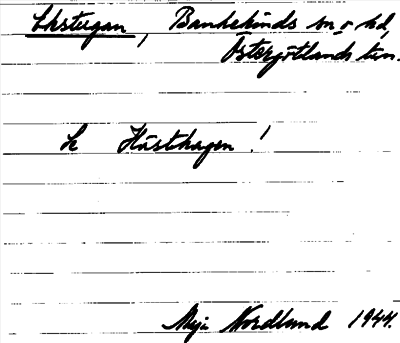 Ekstugan, Bankekinds sn o hd,
Östergötlands län.
Se Hästhagen!
Maja Nordlund 1944.